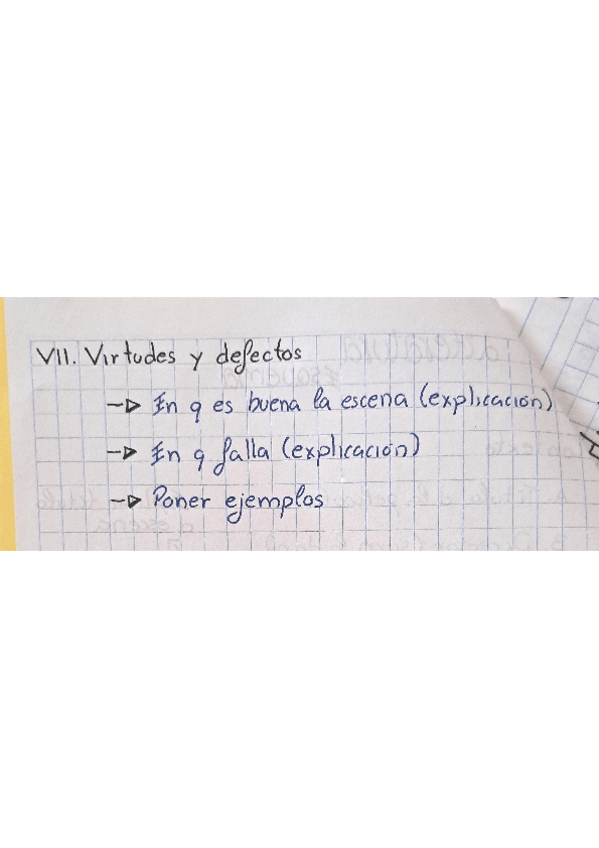 VII. Virtudes y defectos
-▷ En q es buena la escena (explicación)
-▷ En q falla (explicación)
-▷ Poner ejemplos